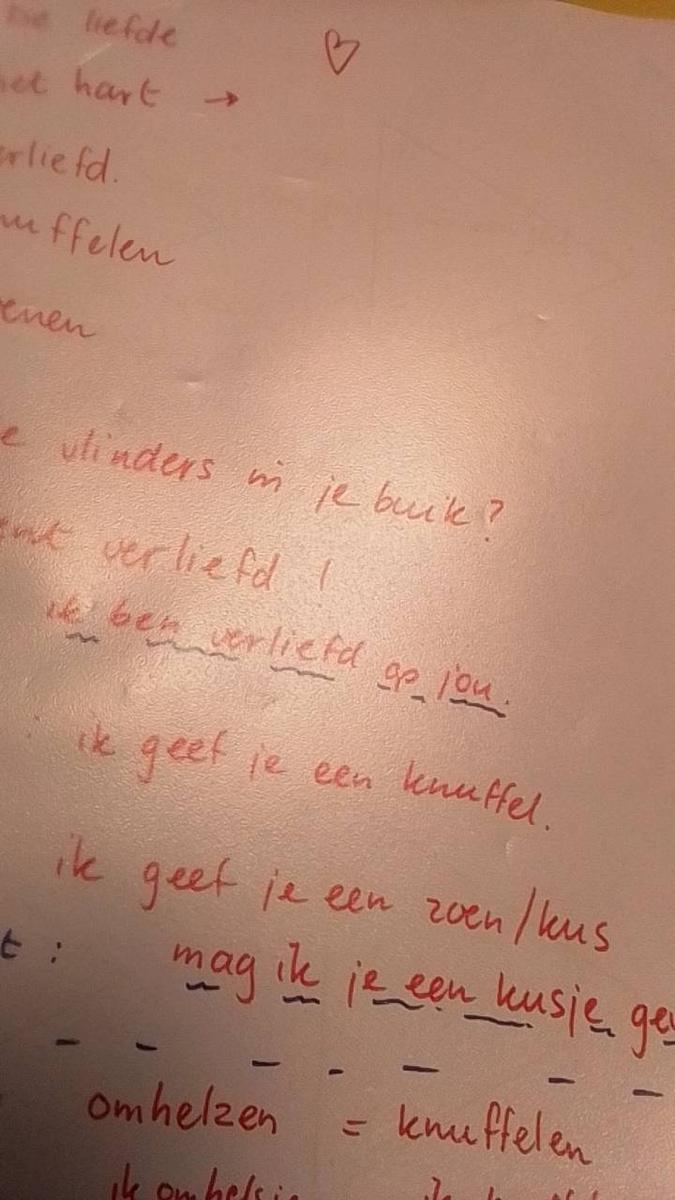 die liefde
het hart →
erliefd.
nuffelen
enen
e vlinders in je buik?
ent verliefd !
ik ben verliefd op jou.
ik geef je een knuffel.
ik geef je een zoen/kus
t : mag ik je een kusje gev
omhelzen = knuffelen
ik omhels je